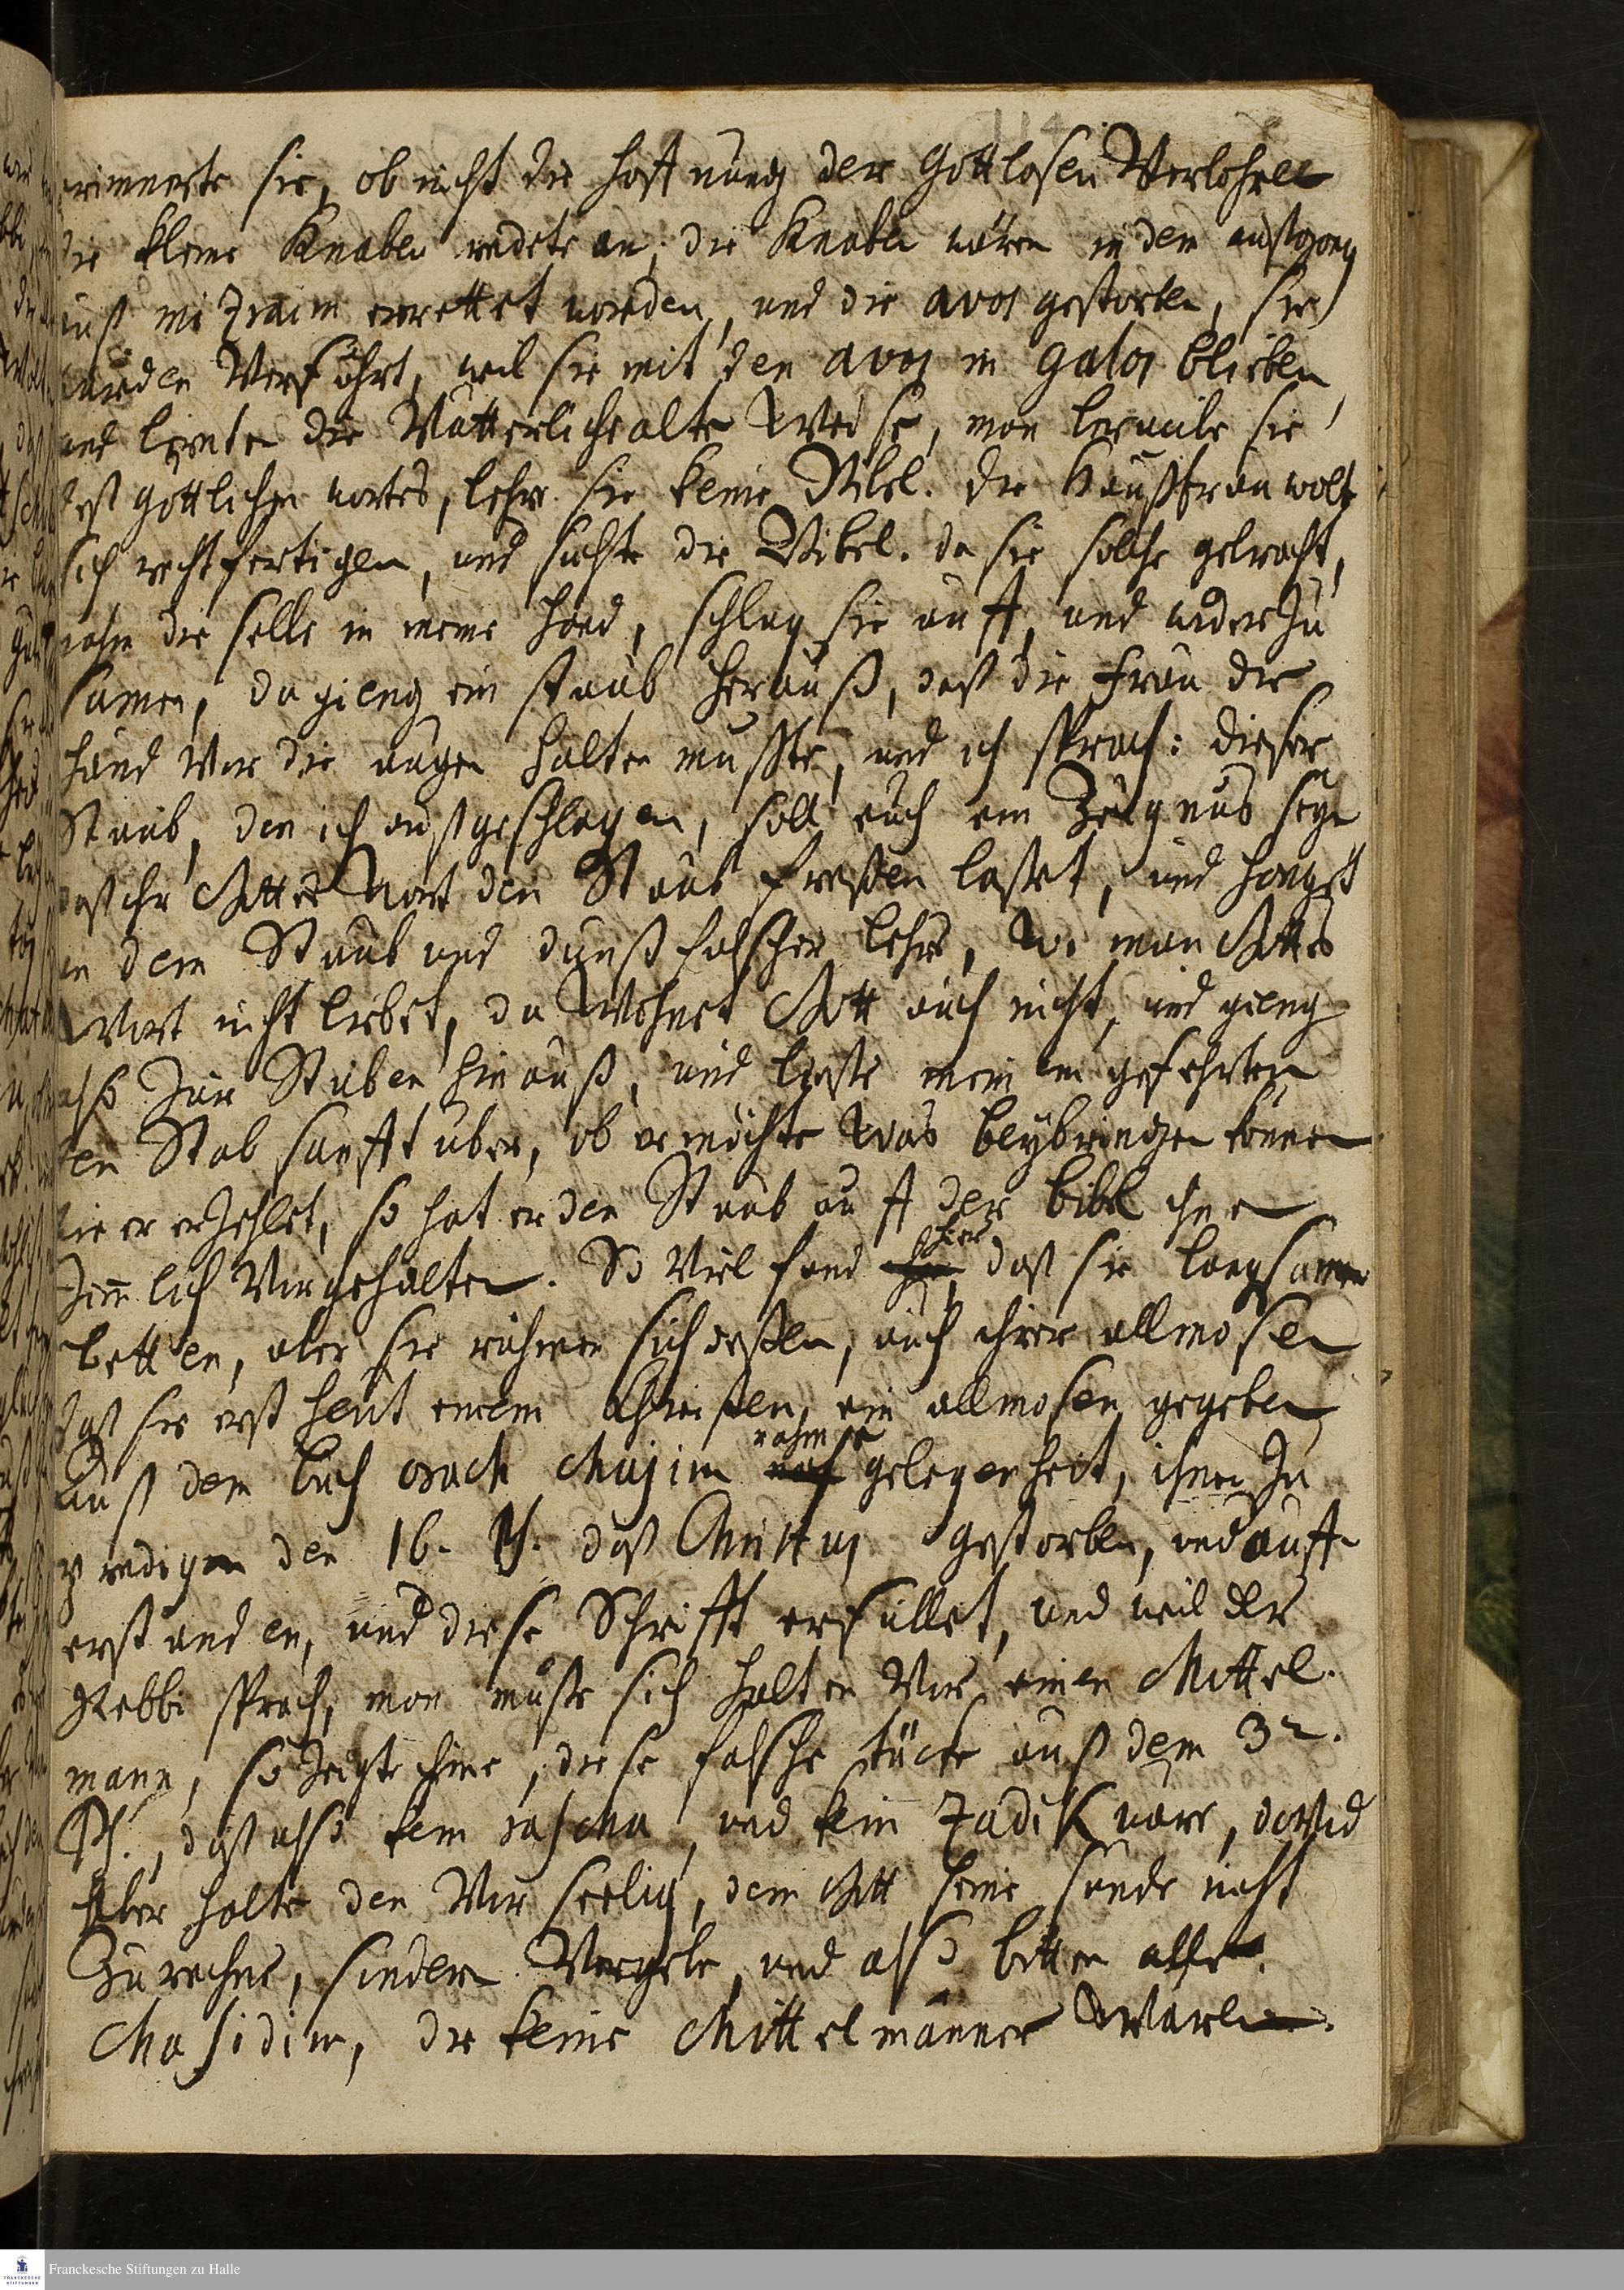 114
erinnerte sie, ob nicht die hoffnung der Gottlosen Verlohren
die kleine Knaben redete an, die Knaben wären in dem außgang
auß mizraim errettet worden, und die avos gestorben, sie
würden Verführt, weil sie mit den avos in galos blieben,
und lernten die Vätterliche alte Weise, man beraube sie
deß göttlichen wortes, lehre sie keine Bibel. die Haußfrau wolte
sich rechtfertigen, und suchte die Bibel. da sie solche gebracht,
nahm die selbe in meine hand, schlug sie auff, und wider zu
samen, da gieng ein staub herauß, daß die frau die
händ Vor die augen halten mußte, und ich sprach: dieser
Staub, den ich außgeschlagen, soll euch ein Zeugnus seyn
daß ihr Gottes Wort den Staub freßen laßet, und hanget
an dem Staub und dunst falscher lehre, Wo man Gottes
Wort nicht liebet, da Wohnet Gott auch nicht, und gieng
also zur Stuben hinauß, und ließe meinem gefehrten
den Stab sanfft uber, ob er möchte Was beybringen können
wie er erzehlet, so hat er den Staub auff der bibel ihnen
zimlich Vorgehalten. So Viel fand hier, daß sie langsamer
betten, aber sie rühmen sich deßen, auch ihrer allmosen
daß sie erst heut einem Christen, ein allmosen gegeben,
Auß dem buch orach Chajim nahme gelegenheit, ihnen zu
predigen den 16. Ps. daß Christus gestorben, und auff
erstanden, und diese Schrifft erfüllet, und weil der
Rebbi sprach, man muße sich halten Vor einen Mittel
mann, so zeigte ihme, diese falsche tücke auß dem 32.
Ps., daß also kein rascha, und kein Zadik wäre, david
Aber halte den Vor seelig, dem Gott seine sünde nicht
Zurechne, sondern Vergebe, und also bitten alle
Chasidim, die keine Mittelmänner Wären.
Franckesche Stiftungen zu Halle